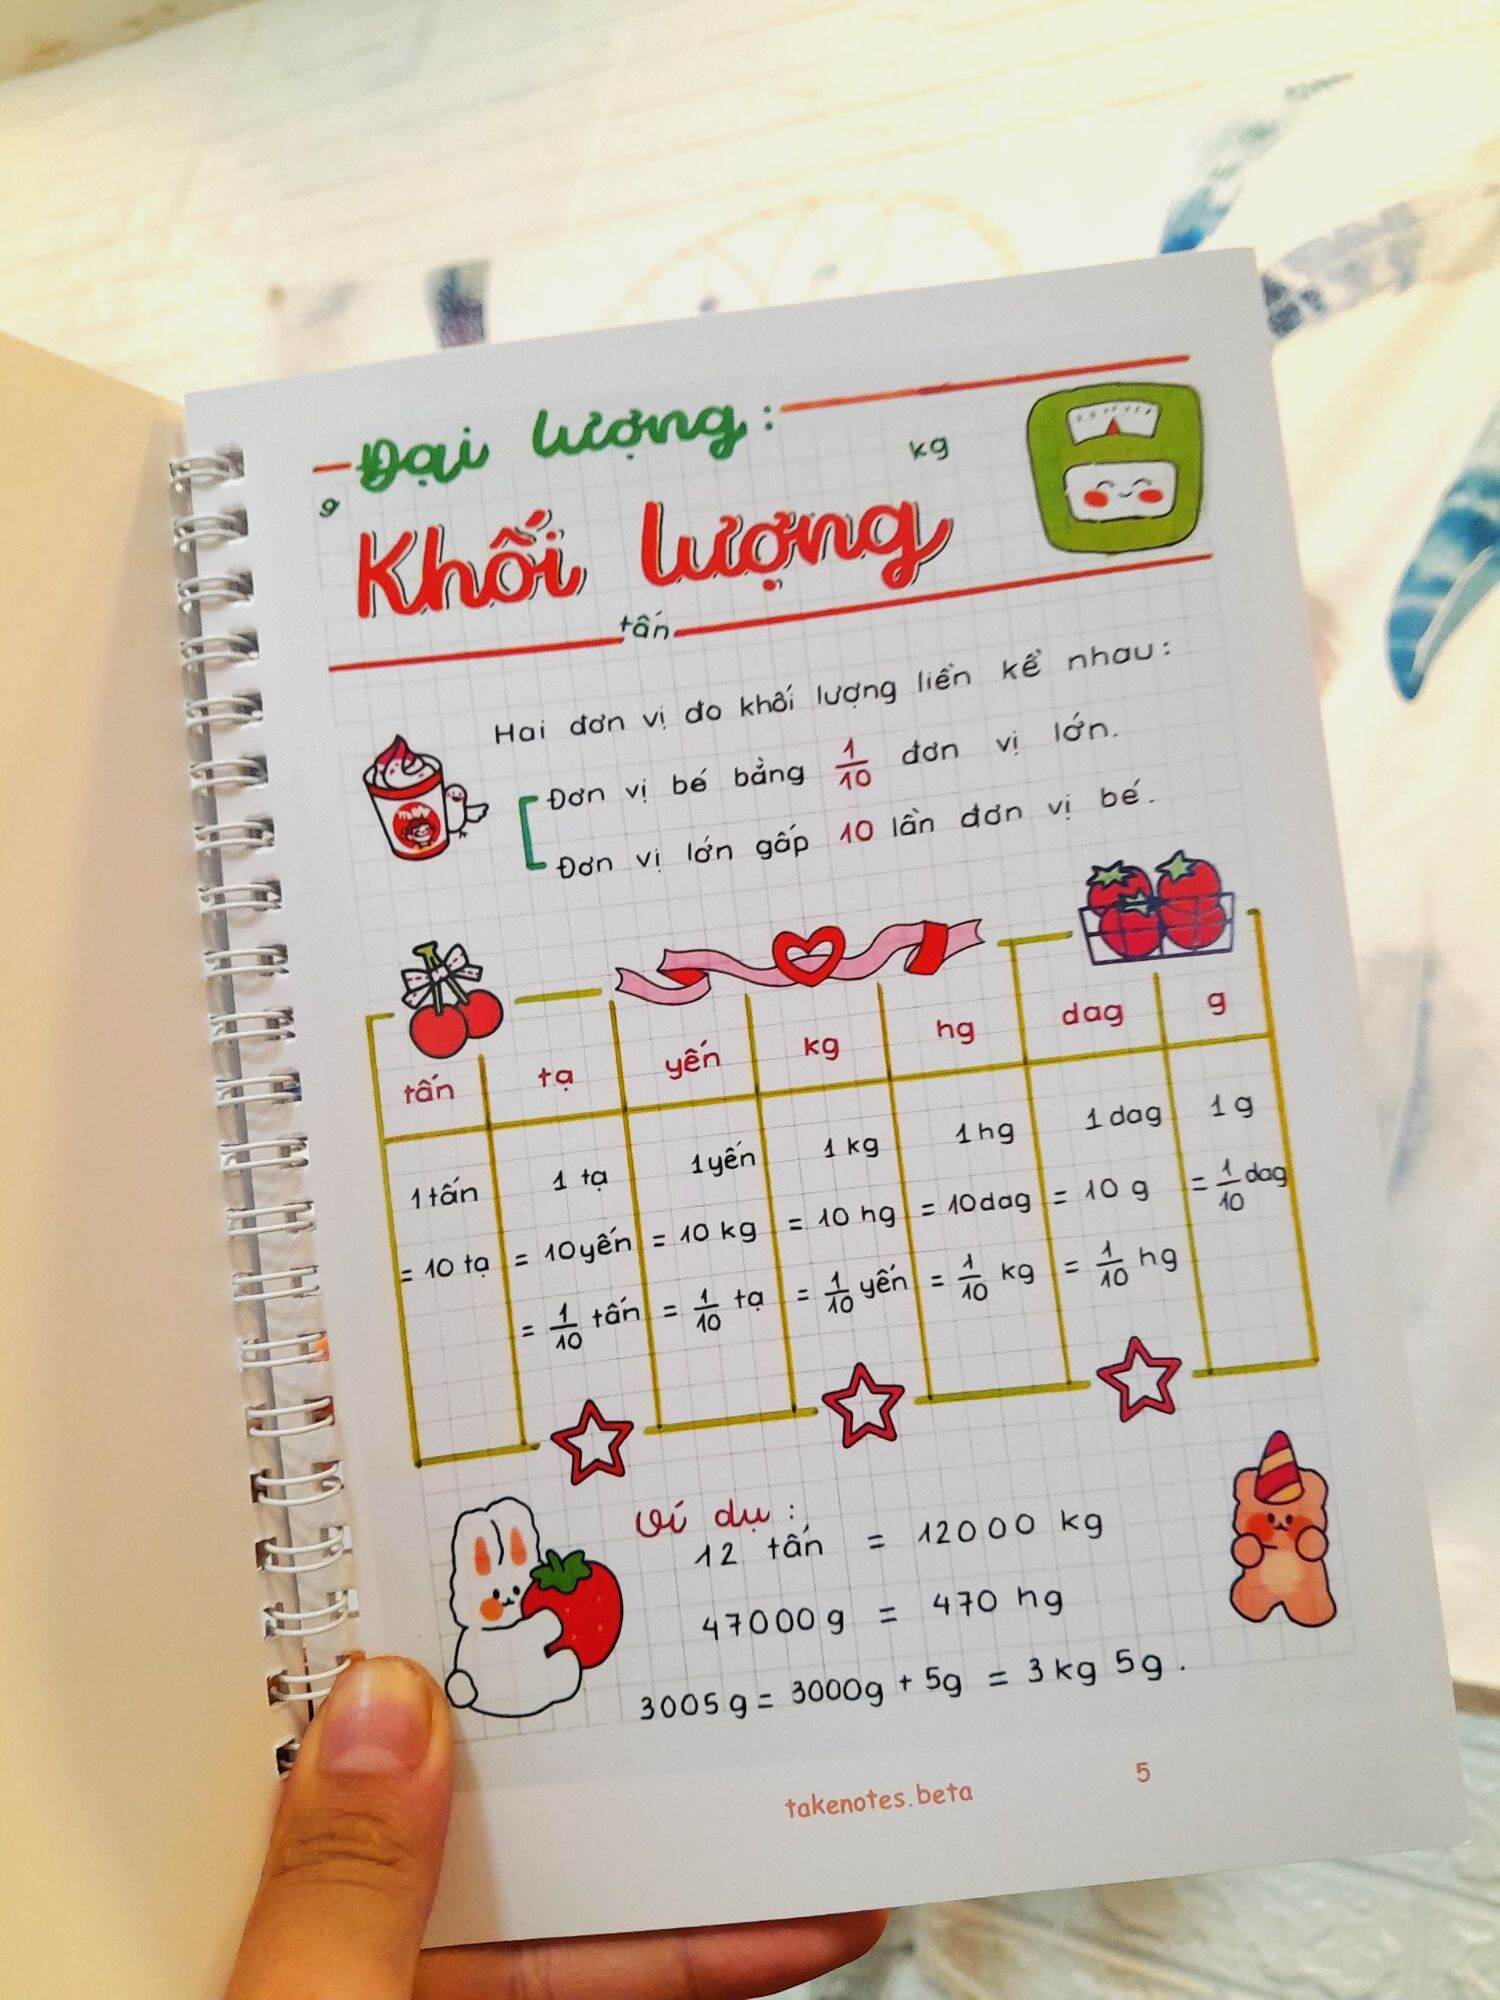 Đại lượng:
kg
g
Khối lượng
tấn
Hai đơn vị đo khối lượng liền kề nhau:
Đơn vị bé bằng 1/10 đơn vị lớn.
Đơn vị lớn gấp 10 lần đơn vị bé.
tấn tạ yến kg hg dag g
1 tấn 1 tạ 1 yến 1 kg 1 hg 1 dag 1 g
= 10 tạ = 10 yến = 10 kg = 10 hg = 10 dag = 10 g = 1/10 dag
= 1/10 tấn = 1/10 tạ = 1/10 yến = 1/10 kg = 1/10 hg
Ví dụ:
12 tấn = 12000 kg
47000g = 470 hg
3005g = 3000g + 5g = 3kg 5g.
takenotes.beta 5